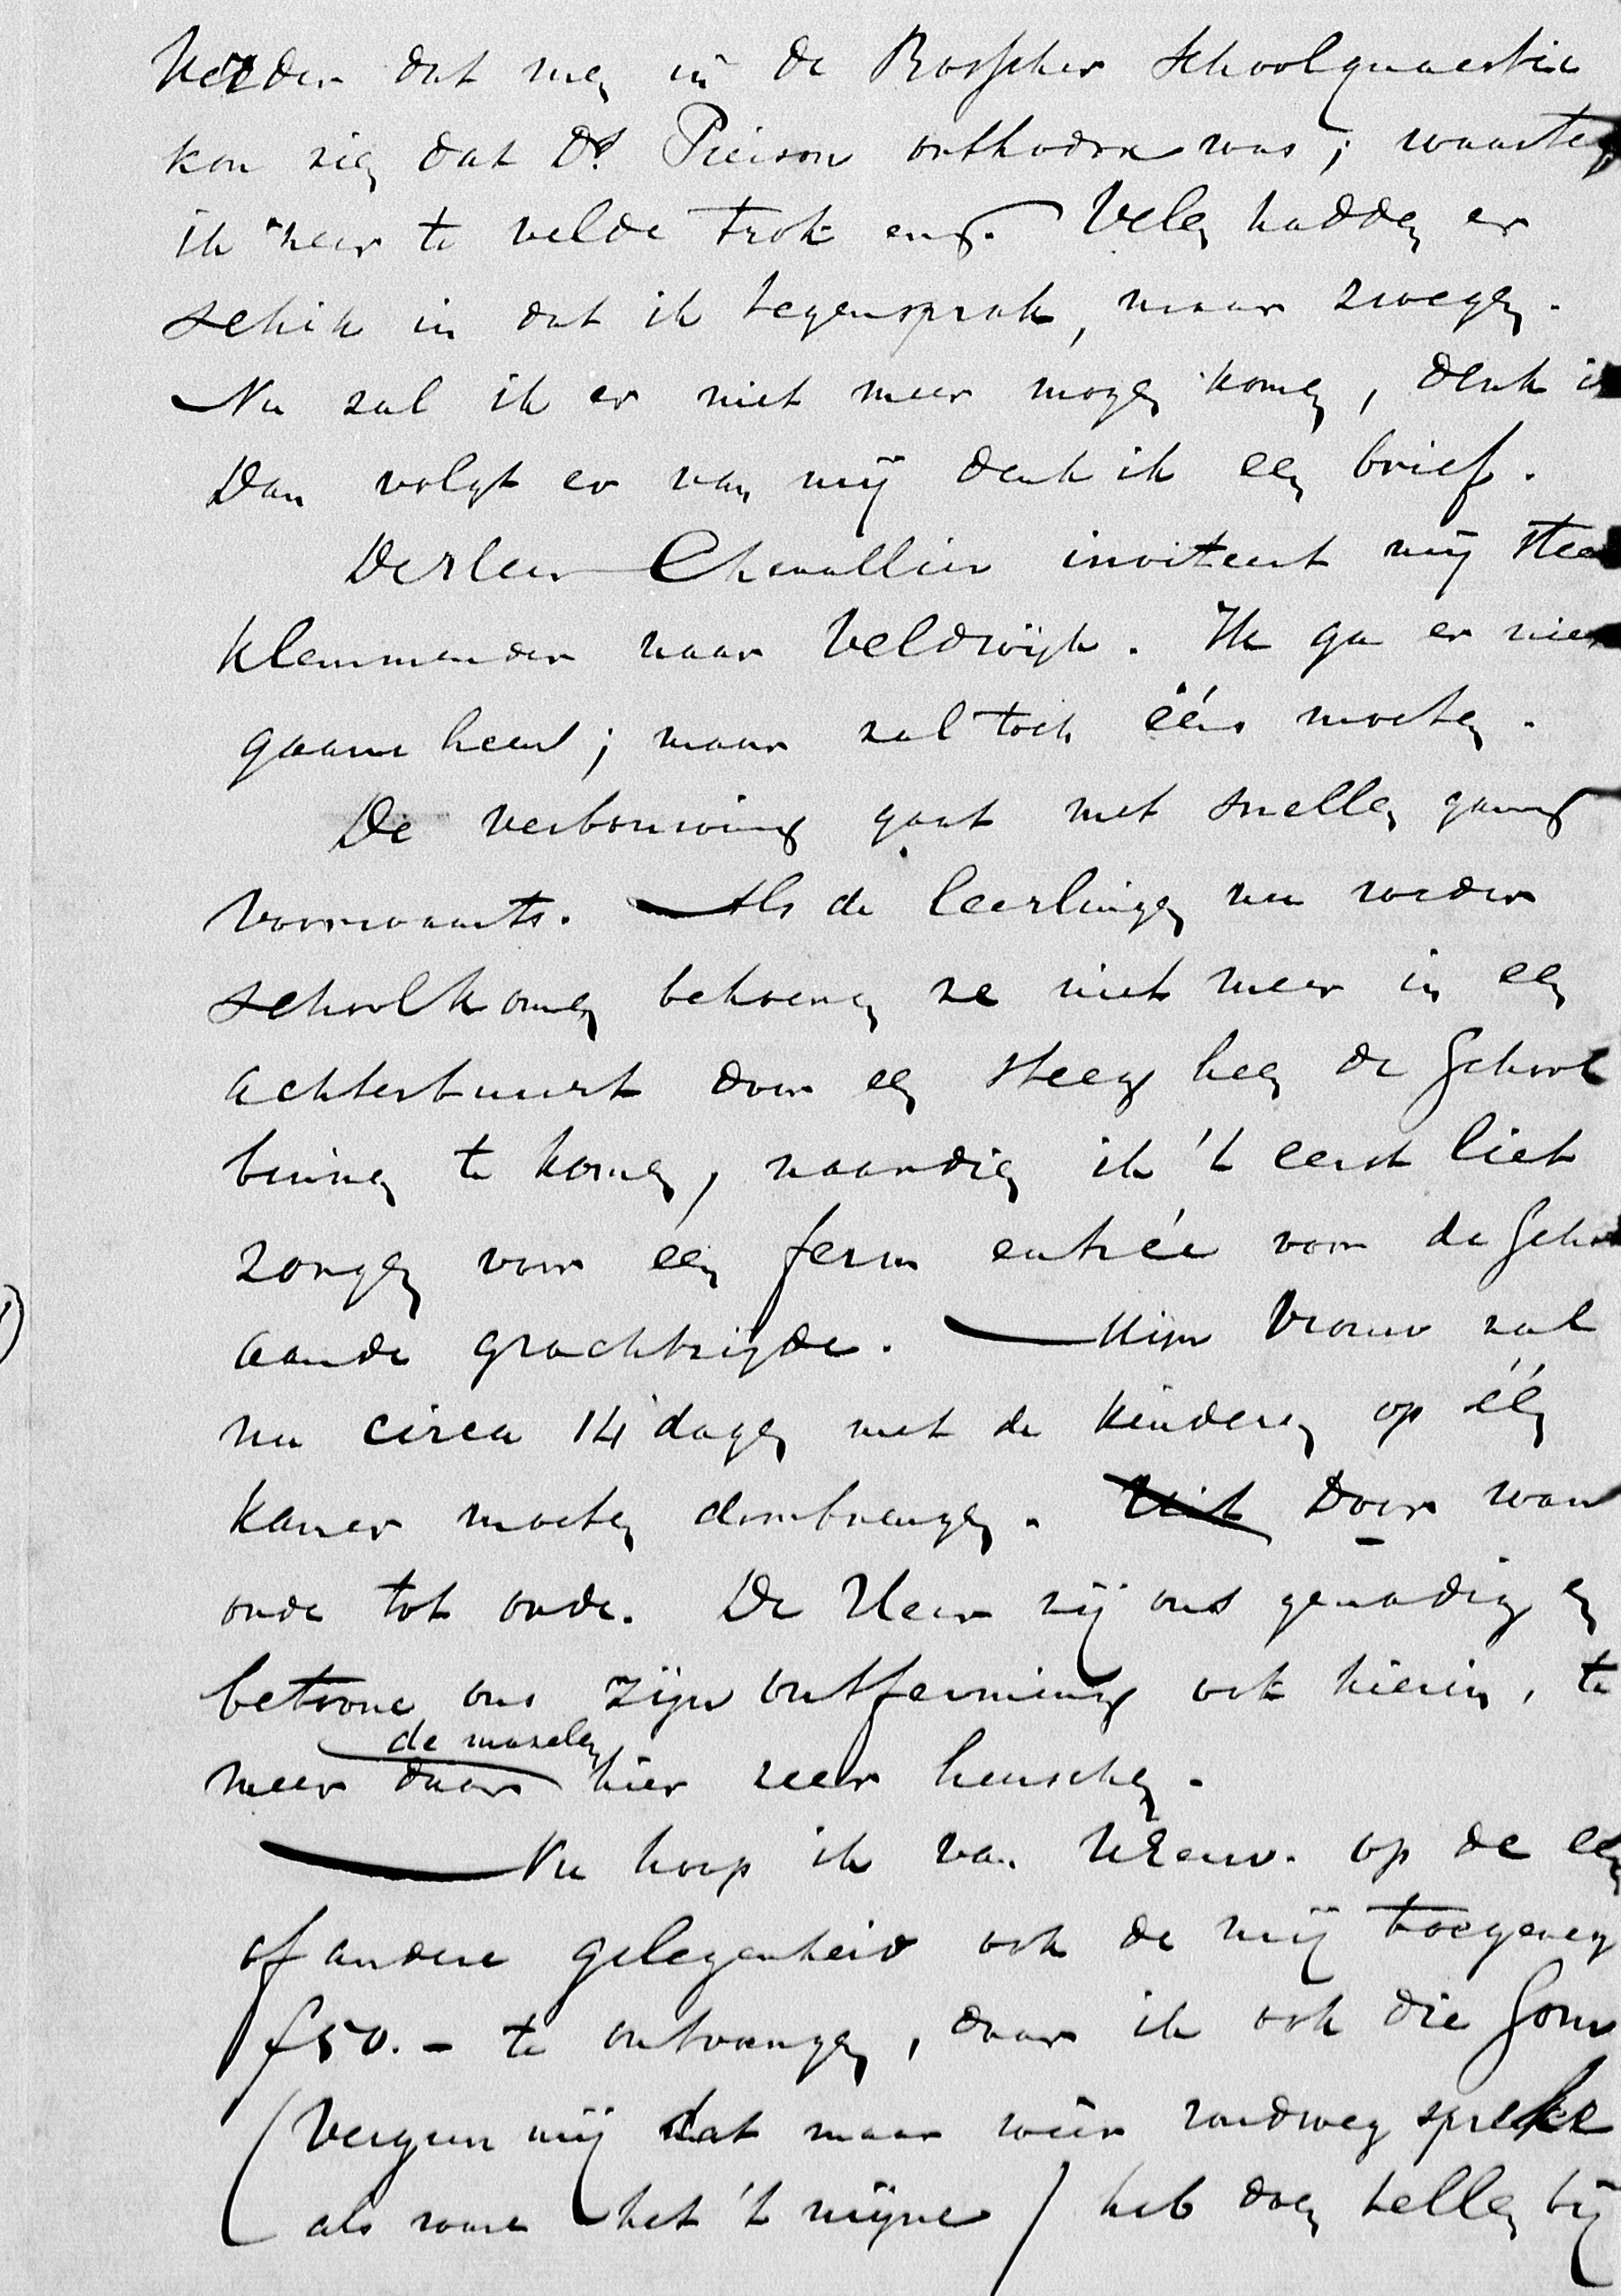 Helder dat men in de Bossche Schoolquaestie
kon zien dat Ds. Pierson orthodox was; waarteg
ik zeer te velde trok enz. Velen hadden er
schik in dat ik tegensprak, maar zwegen.
Nu zal ik er niet meer mogen komen, denk ik
Dan volgt er van mij denk ik een brief.
Chevallier inviteert mij stee
klemmender naar Veldwijk. Ik ga er niet
gaarne heen; maar zal toch ééns moeten.
De verbouwing gaat met snellen gang
voorwaarts. Als de leerlingen nu weder
school komen behoeven ze niet meer in een
achterbuurt door een steeg heen de School
binnen te komen, naardien ik 't eerst liet
zorgen voor een ferm entrée voor de Scho
aan de grachtzijde. Mijn Vrouw zal
nu circa 14 dagen met de kinderen op één
kamer moeten doorbrengen. Uit Door van
onde tot onde. De Heer zij ons genadig en
betoone ons zijn ontferming ook hierin, te
de mazelen
meer daar hier zeer heerschen.
Nu hoop ik van UEerw. op de een
of andere gelegenheid ook de mij toegeneg
f50.- te ontvangen, daar ik ook die Som
(Vergun mij dat maar weer rondweg spreke
als ware het 't mijne) heb doen tellen bij